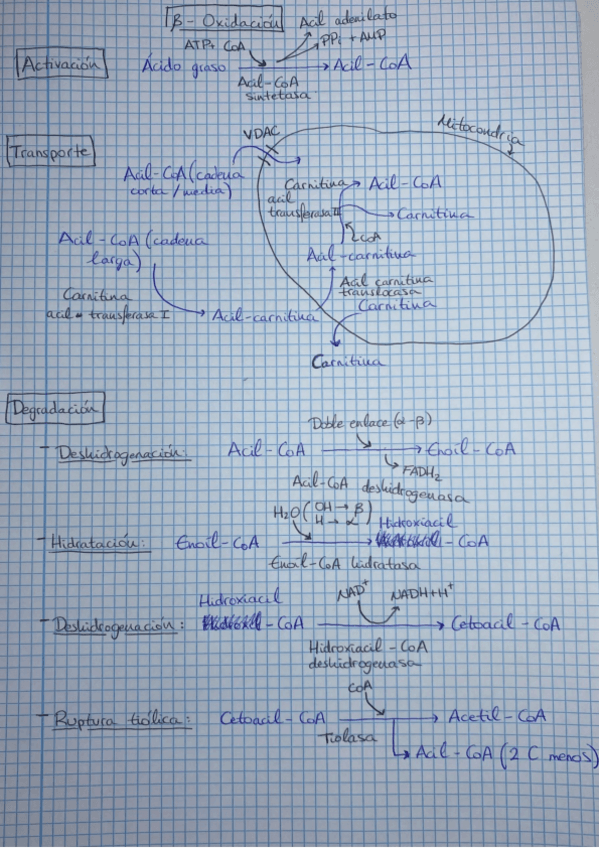 β - Oxidación
Acil adenilato
ATP+ CoA
PPi + AMP
Activación
Ácido graso
Acil-CoA
Acil-CoA
sintetasa
Transporte
VDAC
Mitocondria
Acil-CoA (cadena
corta / media)
Carnitina
acil
transferasa II
Acil-CoA
Carnitina
CoA
Acil-CoA (cadena
larga)
Acil-carnitina
Acil carnitina
translocasa
Carnitina
Carnitina
acil-transferasa I
Acil-carnitina
Carnitina
Degradación
Doble enlace (α-β)
- Deshidrogenación: Acil-CoA Enoil-CoA
FADH2
Acil-CoA deshidrogenasa
H2O (OH → β
H → α)
Hidroxiacil
- Hidratación: Enoil-CoA - CoA
Enoil-CoA hidratasa
Hidroxiacil
NAD+ NADH+H+
- Deshidrogenación: - CoA Cetoacil-CoA
Hidroxiacil-CoA
deshidrogenasa
CoA
- Ruptura tiólica: Cetoacil-CoA Acetil-CoA
Tiolasa
Acil-CoA (2 C menos)